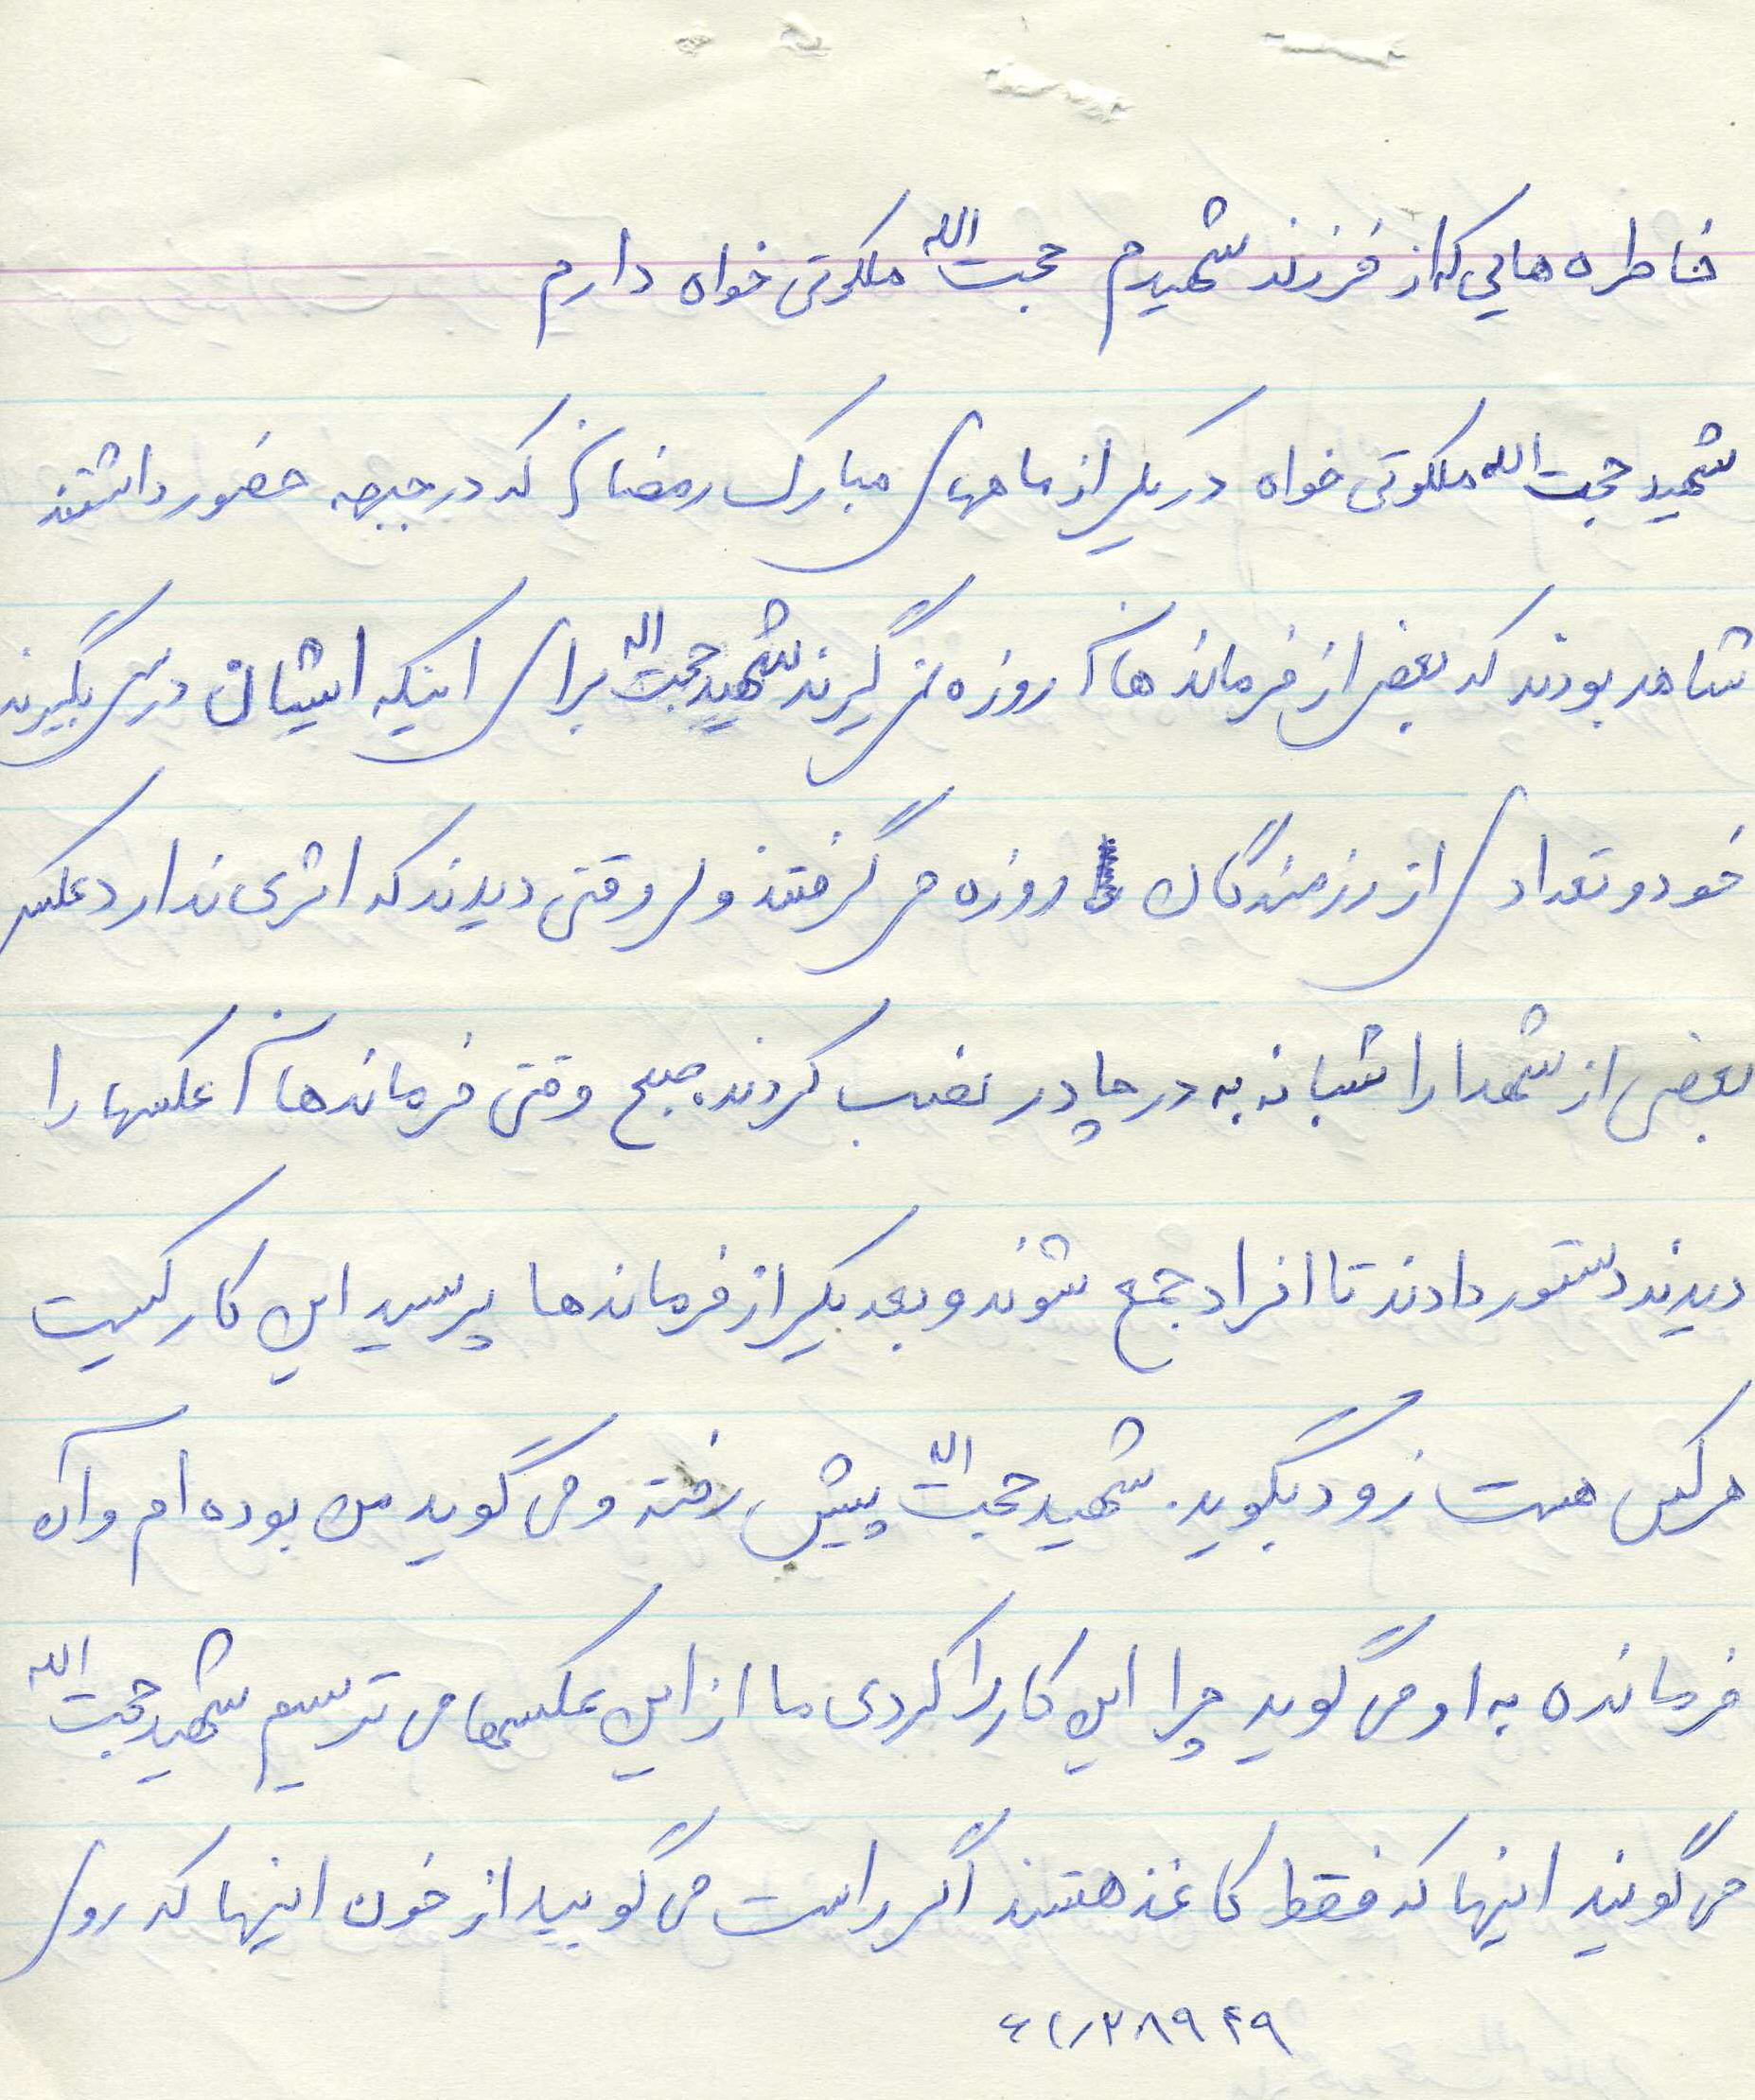 خاطره هایی که از فرزند شهیدم حجت الله ملکوتی خواه دارم
شهید حجت الله ملکوتی خواه در یکی از ماههای مبارک رمضان که در جبهه حضور داشتند
شاهد بودند که بعضی از فرماندهان روزه نمی گیرند شهید حجت اله برای اینکه ایشان درس بگیرند
خود و تعدادی از رزمندگان روزه می گرفتند ولی وقتی دیدند که اثری ندارد عکس
بعضی از شهدا را شبانه به در چادر نصب کردند. صبح وقتی فرماندهان عکسها را
دیدند دستور دادند تا افراد جمع شوند و بعد یکی از فرماندها پرسید این کار کیست
هرکس هست زود بگوید. شهید حجت اله پیش رفته و می گوید من بوده ام و آن
فرمانده به او می گوید چرا این کار را کردی ما از این عکسها می ترسیم شهید حجت الله
می گویند اینها که فقط کاغذ هستند اگر راست می گویید از خون اینها که روی
۶۱/۲۸۹۴۹